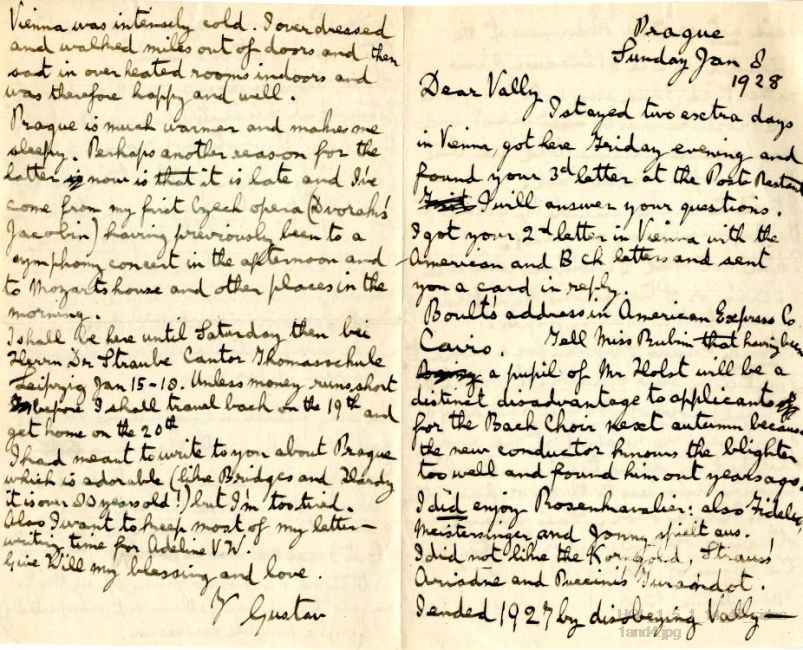 Prague
Sunday Jan 8
1928
Dear Vally
I stayed two extra days
in Vienna, got here Friday evening and
found your 3rd letter at the Post Restant
I will answer your questions.
I got your 2nd letter in Vienna with the
American and B Ch letters and sent
you a card in reply.
Boult's address in American Express Co
Cairo. Tell Miss Rubin that having been
a pupil of Mr Holst will be a
distinct disadvantage to applicants
for the Bach Choir next autumn because
the new conductor knows the blighter
too well and found him out years ago.
I did enjoy Rosenkavalier: also Fidelio,
Meistersinger and Jonny spielt aus.
I did not like the Korngold, Strauss'
Ariadne and Puccini's Turandot.
I ended 1927 by disobeying Vally —
1and4.jpg
Vienna was intensely cold. I overdressed
and walked miles out of doors and then
sat in overheated rooms indoors and
was therefore happy and well.
Prague is much warmer and makes me
sleepy. Perhaps another reason for the
latter is now is that it is late and I've
come from my first Czech opera (Dvorak's
Jacobin) having previously been to a
symphony concert in the afternoon and
to Mozarts house and other places in the
morning.
I shall be here until Saturday then bei
Herrn Dr Straube Cantor Thomasschule
Leipzig Jan 15-18. Unless money runs short
before I shall travel back on the 19th and
get home on the 20th
I had meant to write to you about Prague
which is adorable (like Bridges and Hardy
it is over 80 years old!) but I'm too tired.
Also I want to keep most of my letter-
writing time for Adeline V W.
Give Will my blessing and love.
Y Gustav